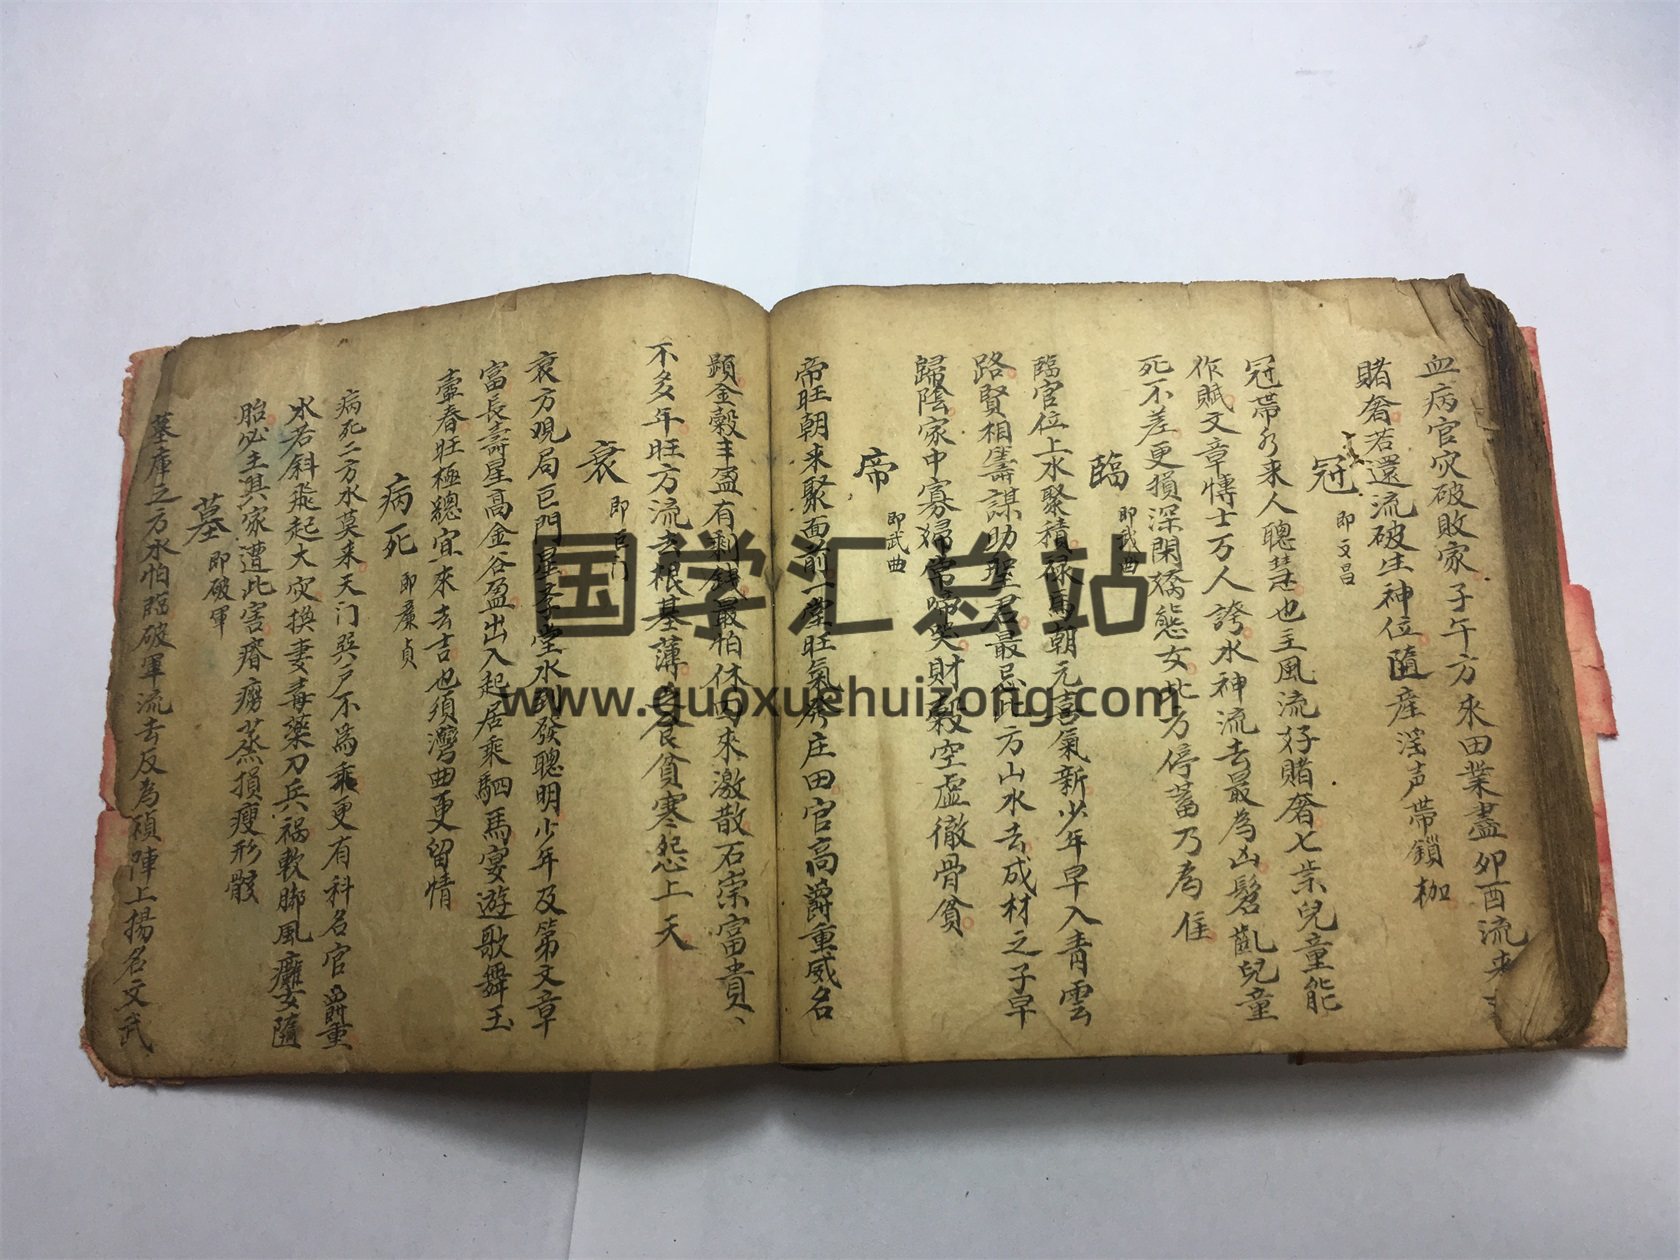 血病官灾破敗家子午方來田業盡卯酉流來
賭奢若還流破生神位隨產淫声帶鎖枷
冠 即文昌
冠帶水來人聰慧也主風流好賭奢七崇兒童能
作賦文章慱士万人誇水神流去最為凶髫齓兒童
死不差更損深閨嬌態女此方停蓄乃為佳
臨 即武曲
臨官位上水聚積祿馬朝元喜氣新少年早入青雲
路賢相籌謀助聖君最忌此方山水去成材之子早
歸陰家中寡婦常啼哭財穀空虛徹骨貧
帝 即武曲
帝旺朝來聚面前一堂旺氣發庄田官高爵重威名
顕金榖丰盈有剩錢最怕休囚來激散石崇富貴、
不多年旺方流去根基薄食貧寒怨上天
衰 即巨门
衰方覌局巨門星學堂水到發聰明少年及第文章
富長壽星高金谷盈出入起居乘駟馬宴遊歌舞玉
壺春旺極總宜來去吉也須灣曲更留情
病死 即廉貞
病死二方水莫来天门巽户不為乖更有科名官爵重
水若斜飛起大灾換妻毒藥刀兵禍軟脚風癱女隨
胎必主其家遭此害瘠癆蒸損瘦形骸
墓 即破軍
墓庫之方水怕臨破軍流去反為禎陣上揚名文武
国学汇总站
www.guoxuehuizong.com